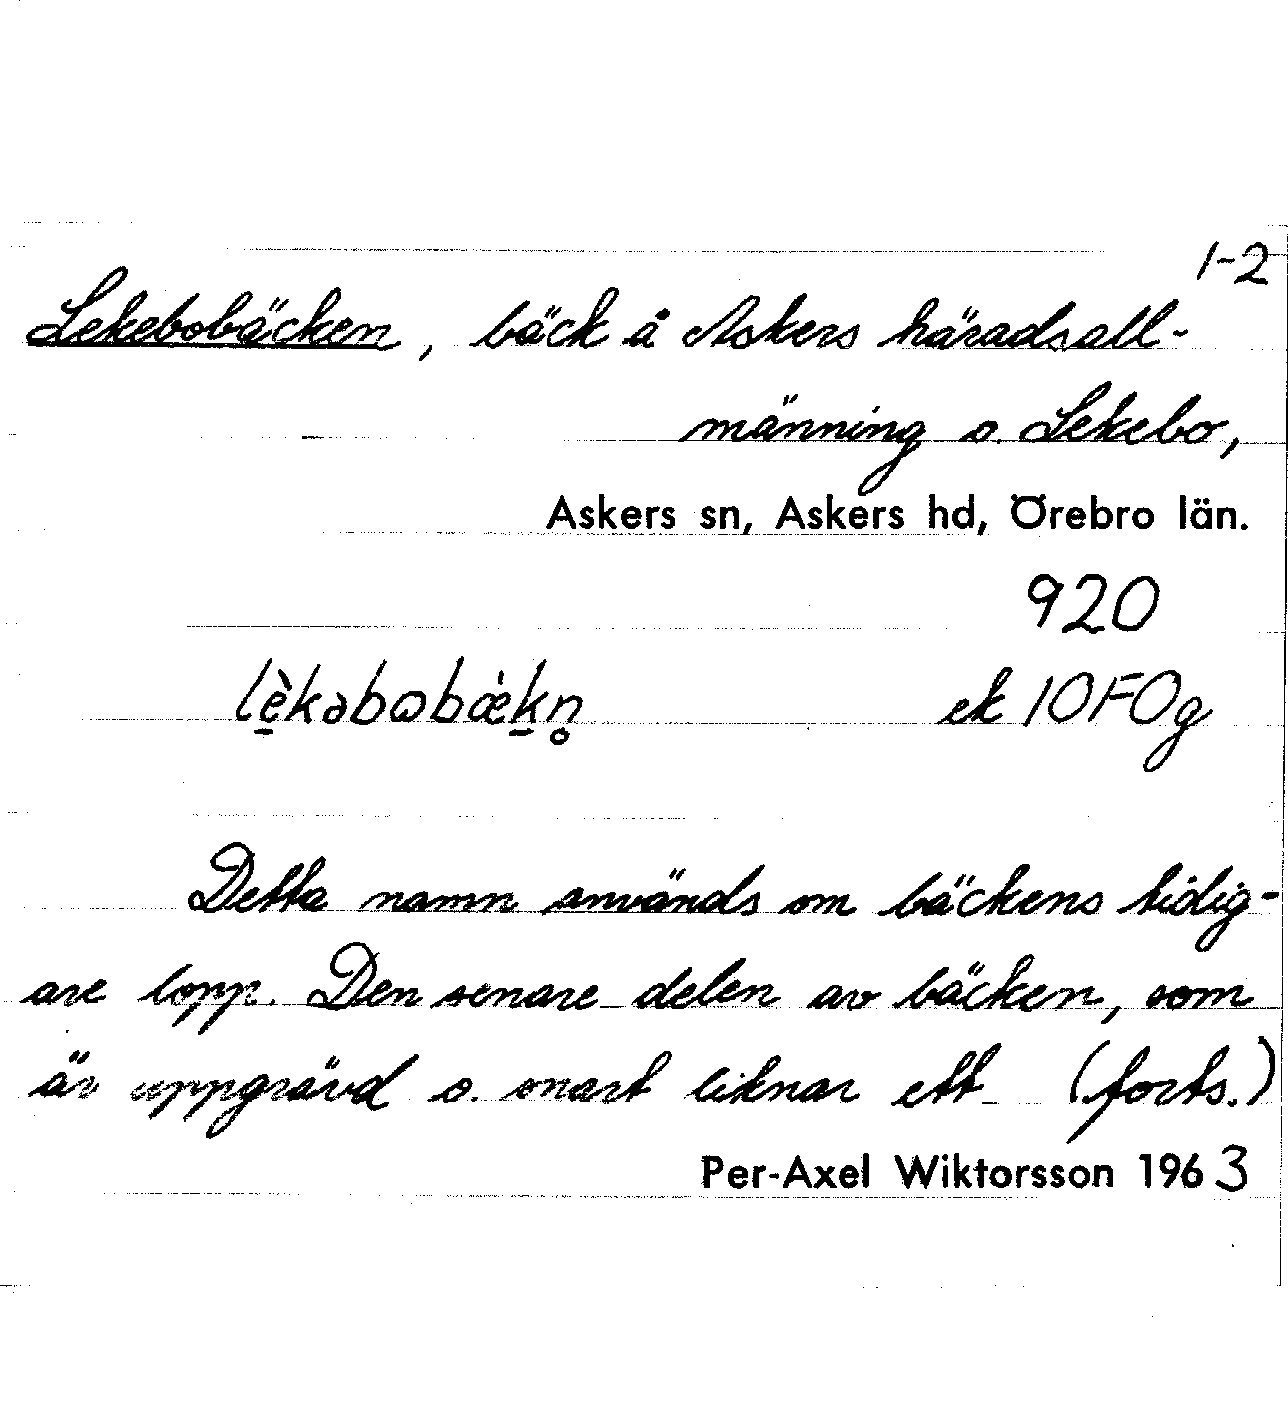 1-2
Lekebobäcken, bäck å Askers häradsall-
männing o. Lekebo,
Askers sn, Askers hd, Örebro län.
920
lè̱kəbωbæ̀ḵn̥ ek 10F0g
Detta namn används om bäckens tidig-
are lopp. Den senare delen av bäcken, som
är uppgrävd o. snart liknar ett (forts.)
Per-Axel Wiktorsson 1963